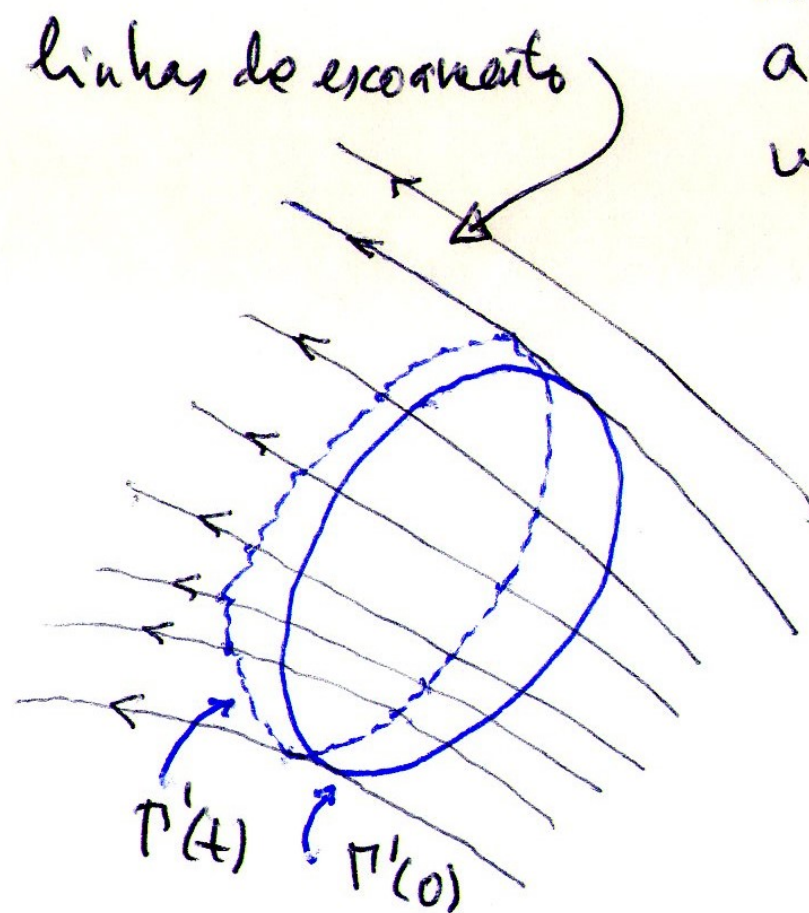 linhas de escoamento
a
Γ'(t)
Γ'(0)